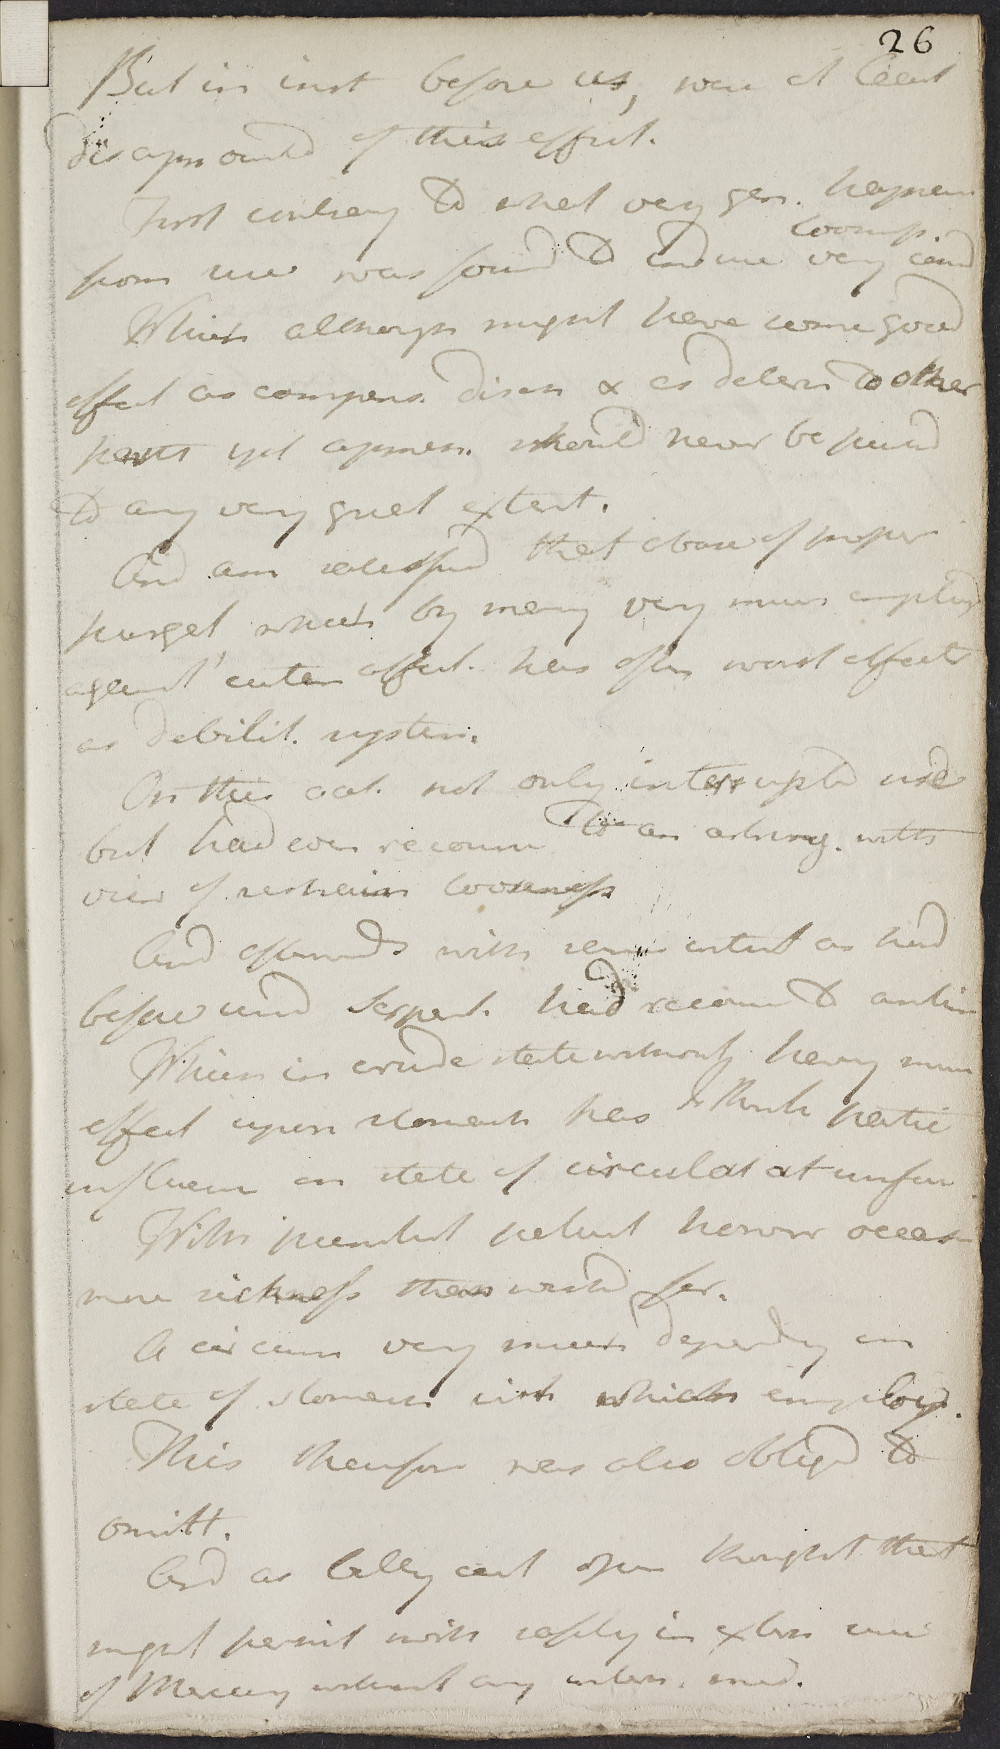 26
But in inst before us, was at least
disapointd of this effect.
First contrary to what very gen. happens
from use was found to induce very cond
loosnss.
Which although might have some good
effect as compens. disch & as deterr to other
parts yet apprehen. should never be pushd
to any very great extent.
And am satisfied that abuse of proper
purgat which by many very much employd
against cutan affect. has often worst effects
as debilit. system.
On this act. not only interruptd use
but had even recourse to an astring. with
view of restrain looseness
And afterwards with same intent as had
before usd Serpent. had recourse to antim
Which in crude state without having much
effect upon stomach has I think partic
influence on state of circulat at surface
With present patient however occas
more sickness than wishd for.
A circum very much dependg on
state of stomach with which employd.
This therefore was also obligd to
omitt.
And as belly cert open thought that
might permit with safety in extern use
of Mercury without any intern. med.